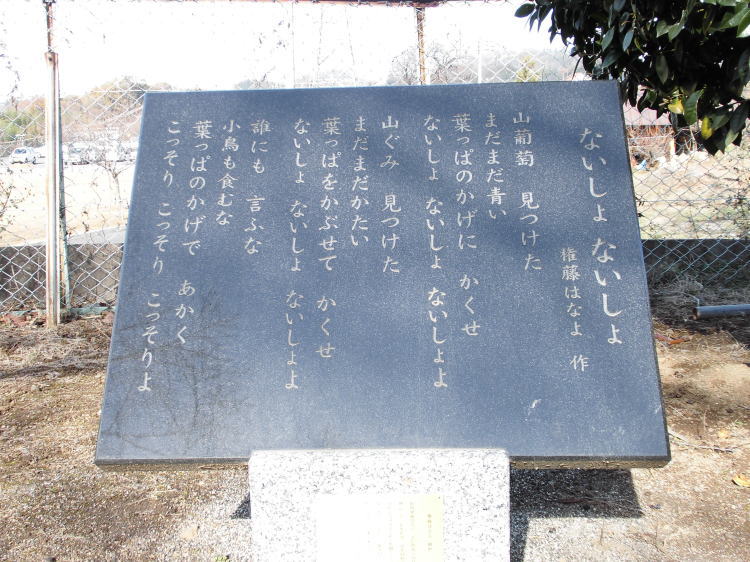 ないしょ ないしょ
権藤はなよ 作
山葡萄 見つけた
まだまだ青い
葉っぱのかげに かくせ
ないしょ ないしょ ないしょよ
山ぐみ 見つけた
まだまだかたい
葉っぱをかぶせて かくせ
ないしょ ないしょ ないしょよ
誰にも 言ふな
小鳥も食むな
葉っぱのかげで あかく
こっそり こっそり こっそりよ